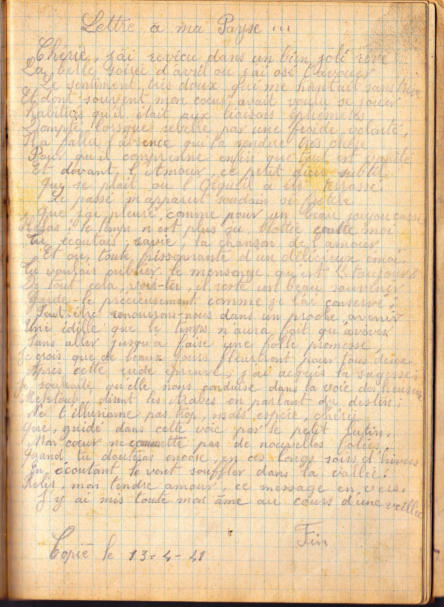 Lettre à ma Payse ...
Chérie, j'ai revécu dans un bien joli rêve
La belle soirée d'avril où j'ai osé t'avouer
Le sentiment très doux que me hantait sans trêve
Et dont souvent mon coeur avait voulu se jouer
Habitué qu'il était aux liaisons éphémères
Dompté, lorsque rebelle par une froide volonté,
Il a fallu l'absence qui t'a rendue très chère
Pour qu'il comprenne enfin que tout est vanité
Et devant l'Amour, ce petit dieu subtil
Qui se plait où l'Orgueil a
Le passé m'apparut soudain si futile
Que j'ai pleuré, comme pour un beau joujou cassé
Hélas! le temps n'est plus où blottie contre moi
Tu écoutais, ravie, la chanson de l'amour
Et où, toute frissonnante d'un délicieux émoi
Tu voulais oublier le mensonge qu'est "toujours"
De tout cela, vois-tu, il reste un beau souvenir
Garde-le précieusement comme je l'ai conservé,
Peut-être renouerons-nous dans un proche avenir
Une idylle que le temps n'aura fait qu'
Sans aller jusqu'à faire une folle promesse
Je crois que de beaux jours fleuriront pour tous deux
Après cette rude épreuve, j'ai acquis la sagesse
Je souhaite qu'elle nous conduise dans la voie des heureux
Mektoub, disent les arabes en parlant du destin;
Ne t'illusionne pas trop, mais espère, chérie
Que, guidé dans cette voie par le petit lutin,
Mon coeur ne commette pas de nouvelles folies.
Quand tu douteras encore, en ces longs soirs d'hivers
En écoutant le vent souffler dans la vallée:
Relis, mon tendre amour, ce message en vers.
J'y ai mis toute mon âme au cours d'une veillée
Fin
Copié le 13-4-41